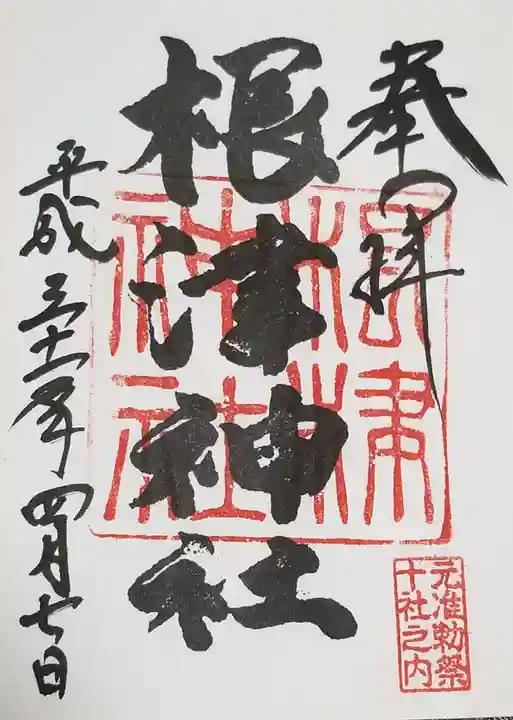 奉拝
根津神社
根津
神社
元准勅祭
十社之内
平成三十一年四月七日